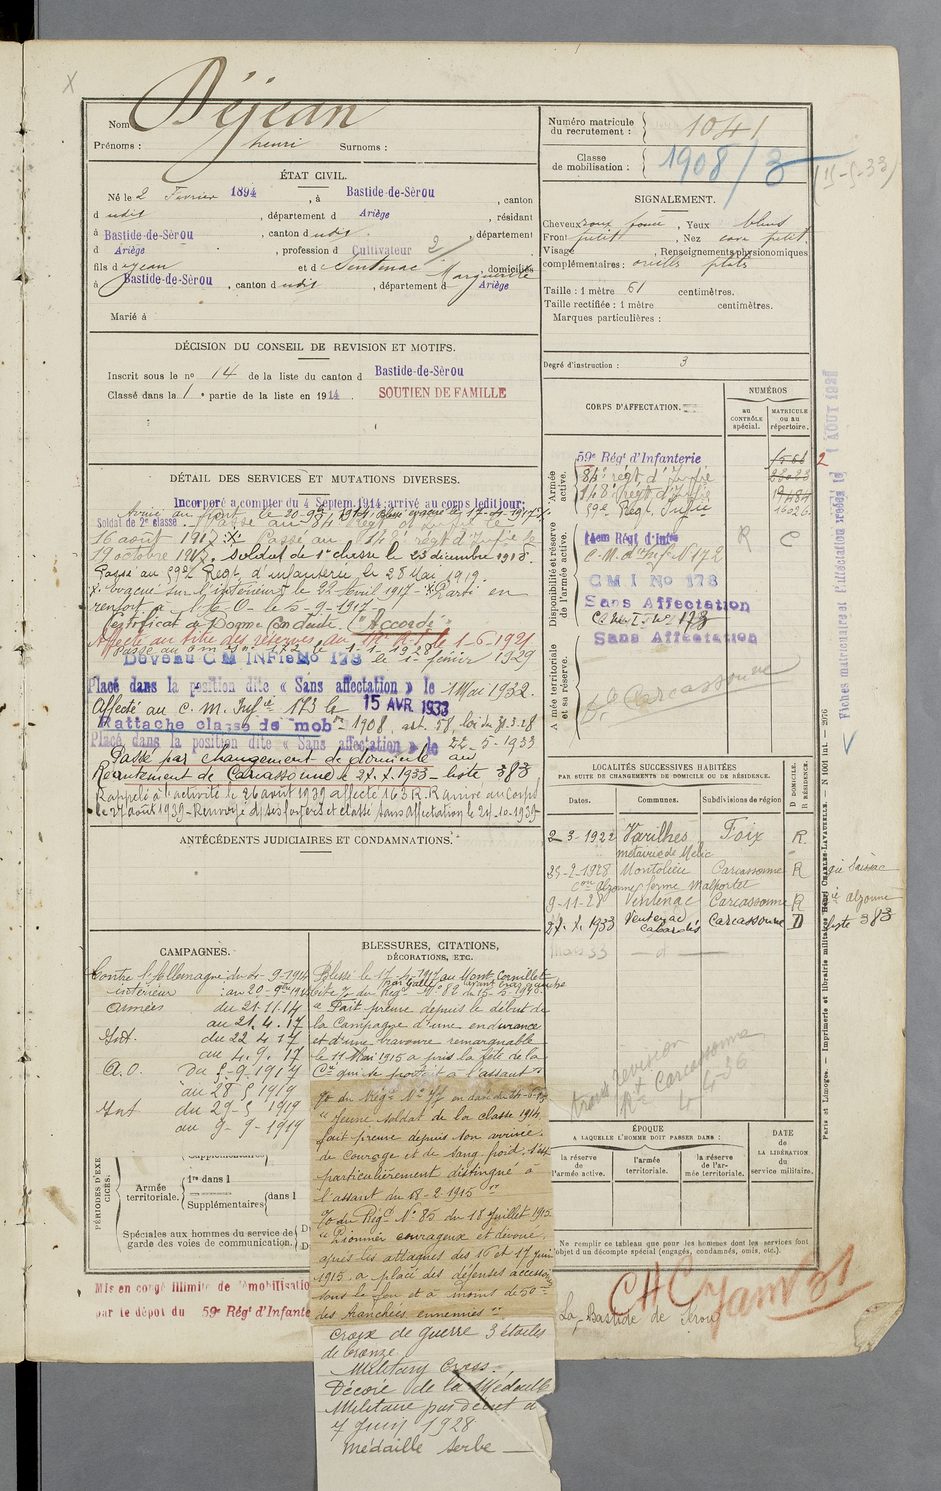 X
Nom : Déjean
Prénoms : henri Surnoms :
Numéro matricule du recrutement : 1041
Classe de mobilisation : 1908/3
(15-5-33)
ÉTAT CIVIL.
Né le 2 Fevrier 1894, à Bastide-de-Sérou, canton
d udit, département d Ariège, résidant
à Bastide-de-Sérou, canton d udit, département
d Ariège, profession d Cultivateur 2/
fils d Jean et d Sentenac Marguerite domiciliés
à Bastide-de-Sérou, canton d udit, département d Ariège
Marié à
SIGNALEMENT.
Cheveux roux foncé, Yeux bleus
Front petit, Nez cave petit.
Visage , Renseignements physionomiques
complémentaires : oreilles plates
Taille : 1 mètre 61 centimètres.
Taille rectifiée : 1 mètre centimètres.
Marques particulières :
Degré d'instruction : 3
DÉCISION DU CONSEIL DE REVISION ET MOTIFS.
Inscrit sous le no 14 de la liste du canton d Bastide-de-Sérou
Classé dans la 1e partie de la liste en 1914. SOUTIEN DE FAMILLE
DÉTAIL DES SERVICES ET MUTATIONS DIVERSES.
Incorporé à compter du 4 Septem. 1914: arrivé au corps ledit jour:
Soldat de 2e classe.
16 août 1917. X. Passé au 148e régt d'Infie le
19 octobre 1917. Soldat de 1e classe le 23 décembre 1918.
Passé au 59e Régt d'infanterie le 28 Mai 1919.
X. évacué sur l'intérieur le 22 Avril 1917 - X Parti en
renfort à l'A.O. le 5-9-1917-
Certificat de Bonne Conduite "Accordé"
Affecté au titre des réserves au 14e R.I. le 1-6-1921
Passé au CM Inf no 172 le 1-1-1928
Devenu C M INFie No 173 le 1er février 1929
Placé dans la position dite « Sans affectation » le 1 Mai 1932.
Affecté au C. M. Infie 173 le 15 AVR 1933
Rattaché classe de mobon 1908, art. 58, loi du 31.3.28
Placé dans la position dite « Sans affectation » le 22-5-1933
Passé par changement de domicile au
Recrutement de Carcassonne le 27.X.1933 - liste 383
Rappelé à l'activité le 26 août 1939 affecté 163 R.R. arrivé au Corps
le 27 août 1939 - Renvoyé ds ses foyers et classé sans affectation le 24-10-1939-
CORPS D'AFFECTATION.
NUMÉROS
au CONTRÔLE spécial.
MATRICULE ou au répertoire.
Armée active.
59e Régt d'Infanterie 2
84e régt d'Infie
148e régt d'Infie 19484
59e Régt Infie 16026
Disponibilité et réserve de l'armée active.
14em Régt d'Infie R C
C.M. d'Inf N 172
C M I No 173
Sans Affectation
C.M.I. No 173
Sans Affectation
Armée territoriale et sa réserve.
Carcassonne
Fiches matriculaire et d'affectation créées le 1 AOUT 1931
ANTÉCÉDENTS JUDICIAIRES ET CONDAMNATIONS.
LOCALITÉS SUCCESSIVES HABITÉES
PAR SUITE DE CHANGEMENTS DE DOMICILE OU DE RÉSIDENCE.
Dates. Communes. Subdivisions de région D DOMICILE. R RÉSIDENCE.
2-3-1922 Varilhes Foix R.
métairie de Mélic
25-2-1928 Montolieu Carcassonne R
Con Alzonne ferme Malportel
9-11-28 Ventenac Carcassonne R Alzonne
27.X.1933 Ventenac Cabardès Carcassonne D liste 383
Mars 33 — d —
revision
Carcassonne
4-36
CAMPAGNES.
Contre l'Allemagne du 4-9-1914
intérieur : au 20-9bre 1914
armées du 21.11.14
au 21.4.17
Int. du 22.4.17
au 4.9.17
A.O. Du 5-9-1917
au 28-5 1919
Int du 29-5 1919
au 9-9-1919
BLESSURES, CITATIONS,
DÉCORATIONS, ETC.
Blessé le 17-4-1917 au Mont Cornillet
" Fait preuve depuis le début de
la Campagne d'une endurance
et d'une bravoure remarquable
le 11 Mai 1915 a pris la tête de la
Cie qui se portait à l'assaut "
O/ du Régt No 77 en date du
" Jeune soldat de la classe 1914
fait preuve depuis son arrivée
de courage et de sang-froid. S'est
particulièrement distingué à
l'assaut du 18-2-1915 "
O/ du Régt No 85 du 18 Juillet 1915
" Pionnier courageux et dévoué,
après les attaques des 16 et 17 juin
1915, a placé des défenses accessoires
sous le feu et à moins de 50 m
des tranchées ennemies "
Croix de guerre 3 étoiles
de bronze
Military Cross.
Décoré de la Médaille
Militaire par décret du
7 Juin 1928
Médaille Serbe —
PÉRIODES D'EXERCICES.
Supplémentaires
Armée territoriale. 1re dans l
Supplémentaires dans l
Spéciales aux hommes du service de garde des voies de communication.
ÉPOQUE
A LAQUELLE L'HOMME DOIT PASSER DANS :
la réserve de l'armée active.
l'armée territoriale.
la réserve de l'armée territoriale.
DATE de LA LIBÉRATION du service militaire.
Ne remplir ce tableau que pour les hommes dont les services font l'objet d'un décompte spécial (engagés, condamnés, omis, etc.).
Paris et Limoges. — Imprimerie et librairie militaires Henri CHARLES-LAVAUZELLE. — N 1001 int. — 2976
Mis en congé illimité de démobilisatio
par le dépôt du 59e Régt d'Infante
La Bastide de Sérou
CHC Janv 31